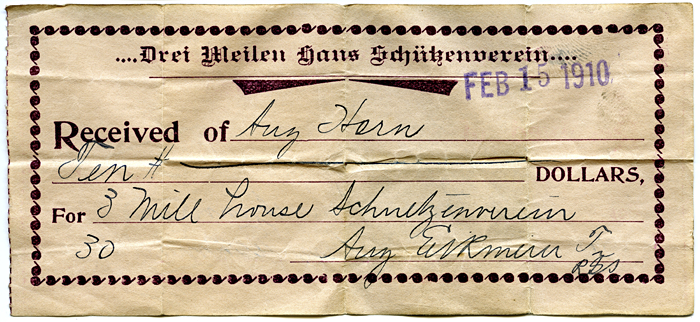 ....Drei Meilen Haus Schützenverein....
FEB 15 1910
Received of Aug Horn
Ten # DOLLARS,
For 3 Mill house Schuetzenverein
30 Aug T